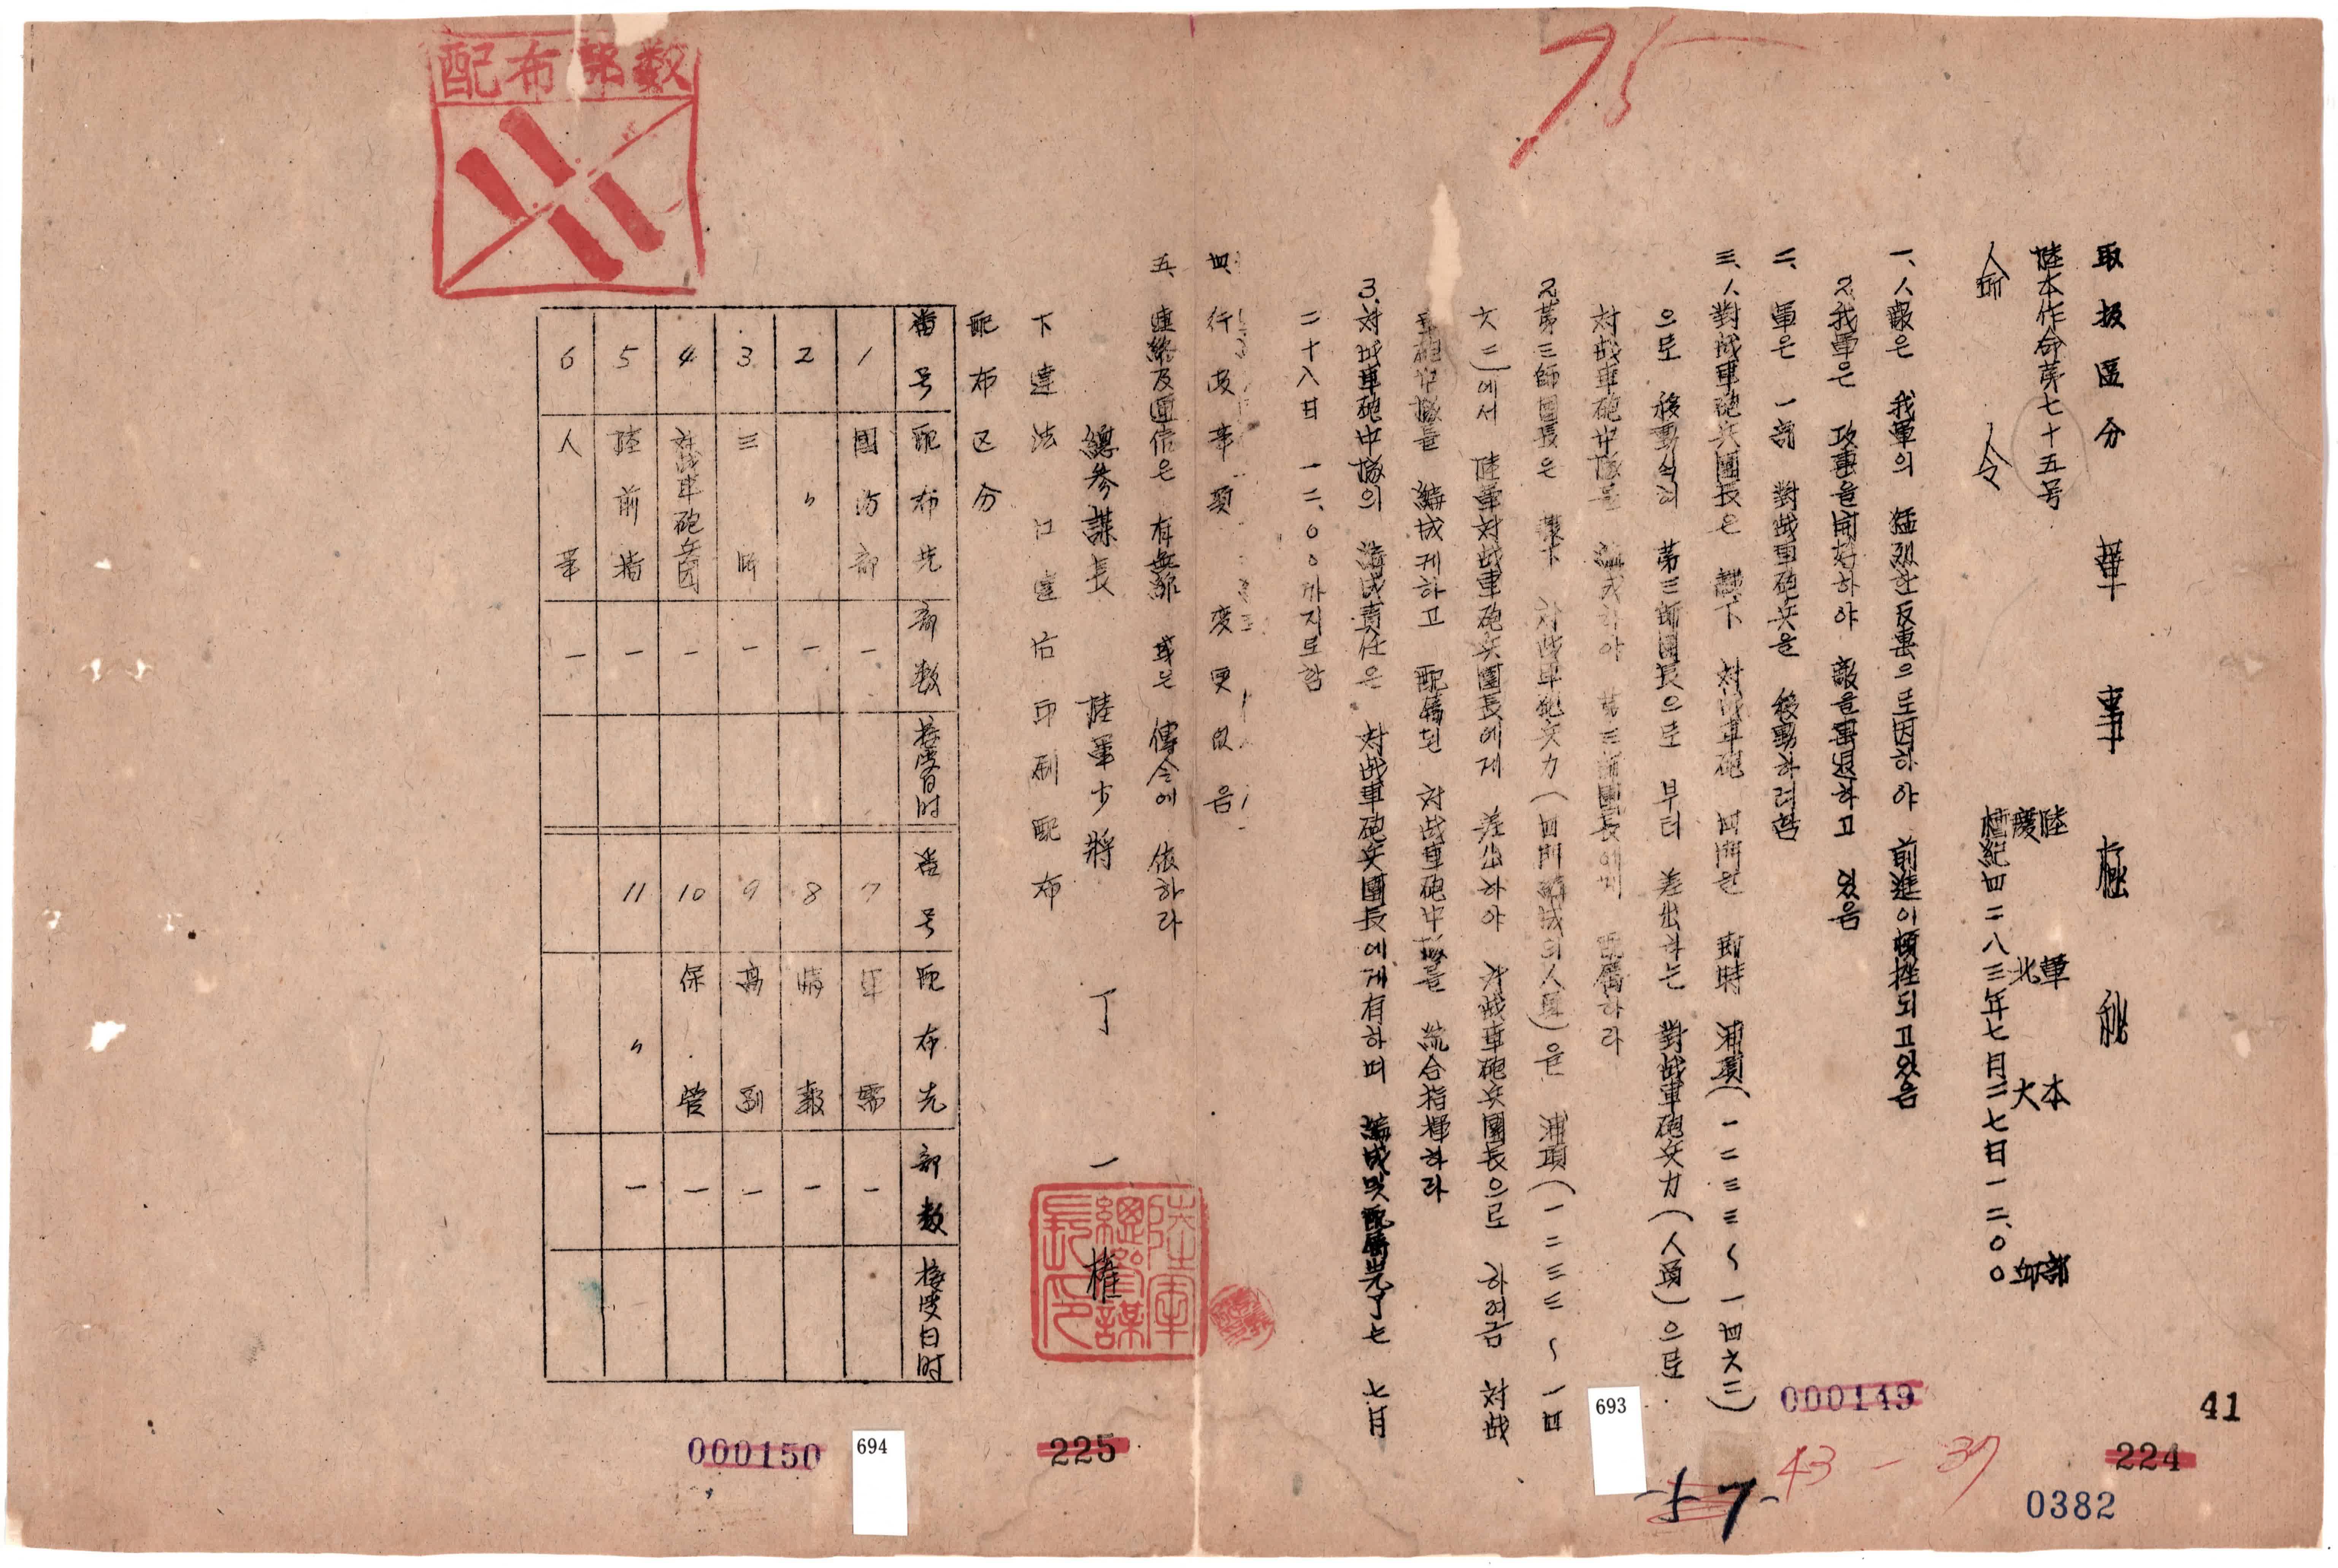 取扱區分 軍事極秘
陸本作命第七十五号
陸軍本部
慶北大邱
檀紀四二八三年七月二七日一二、〇〇
命令
一、1、敵은 我軍의 猛烈한 反擊으로 因하야 前進이 頓挫되고 있음
2、我軍은 攻擊을 開始하야 敵을 擊退하고 있음
二、軍은 一部 對战車砲兵을 移動하려함
三、1、對战車砲兵團長은 隷下 対战車砲 四門은 即時 浦項(一二三三〜一四六二)
으로 移動식혀 第三師團長으로 부터 差出하는 對战車砲兵力(人員)으로
対战車砲中隊를 編成하야 第三師團長에게 配屬하라
2、第三師團長은 隷下 対战車砲兵力(四門編成의 人員)을 浦項(一二三三〜一四
六二)에서 陸軍対战車砲兵團長에게 差出하야 対战車砲兵團長으로 하여금 対战
車砲中隊를 編成게하고 配屬된 対战車砲中隊를 統合指揮하라
3、対战車砲中隊의 編成責任은 対战車砲兵團長에게 有하며 編成및配屬完了는 七月
二十八日 一二、〇〇까지로함
四、行政事項 変更없음
五、連絡及通信은 有無線 或은 傳令에 依하라
總参謀長 陸軍少將 丁一權
下達法 口達后印刷配布
配布区分
番号 配布先 部数 接受日时 番号 配布先 部数 接受日时
1 國防部 一 7 軍需 一
2 〃 一 8 情報 一
3 三師 一 9 高副 一
4 対战車砲兵団 一 10 保管 一
5 陸前指 一 11 〃 一
6 人事 一
配布部数
陸軍總參謀長印
75
41
224
0382
000149
693
43 - 37
57
225
694
000150